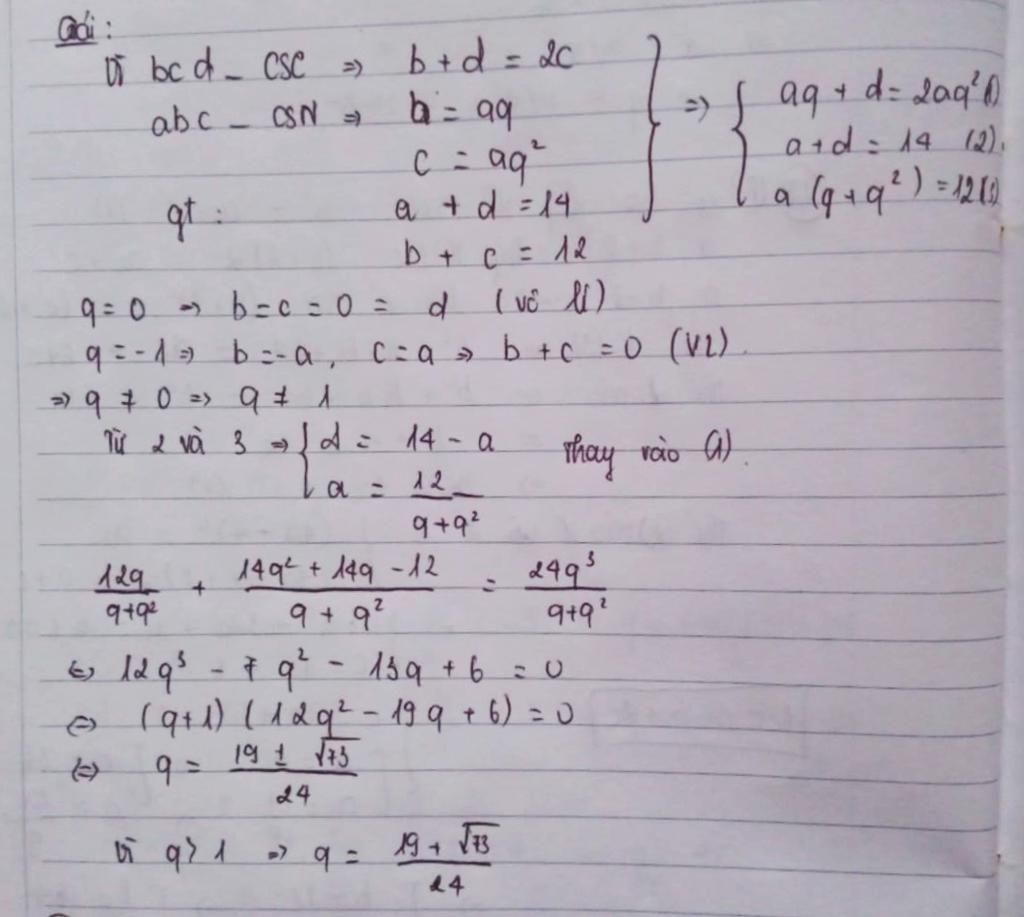 Giải:
Vì bcd - CSC => b + d = 2c
abc - CSN => b = aq
c = aq²
gt: a + d = 14
b + c = 12
=> { aq + d = 2aq² (1)
a + d = 14 (2)
a (q + q²) = 12 (3)
q = 0 => b = c = 0 = d (vô lí)
q = -1 => b = -a, c = a => b + c = 0 (VL).
=> q ≠ 0 => q ≠ 1
Từ 2 và 3 => { d = 14 - a
a = 12/(q + q²)
Thay vào (1).
12q/(q+q²) + (14q² + 14q - 12)/(q + q²) = 24q³/(q+q²)
<=> 12q³ - 7q² - 13q + 6 = 0
<=> (q+1) (12q² - 19q + 6) = 0
<=> q = (19 ± √73)/24
Vì q > 1 => q = (19 + √73)/24